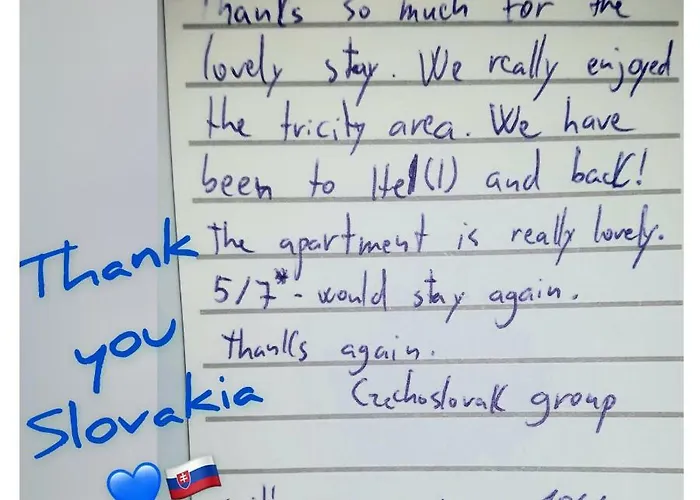 Thanks so much for the
lovely stay. We really enjoyed
the tricity area. We have
been to Hel(l) and back!
The apartment is really lovely.
5/7* - would stay again.
Thanks again.
Czechoslovak group
Thank
you
Slovakia